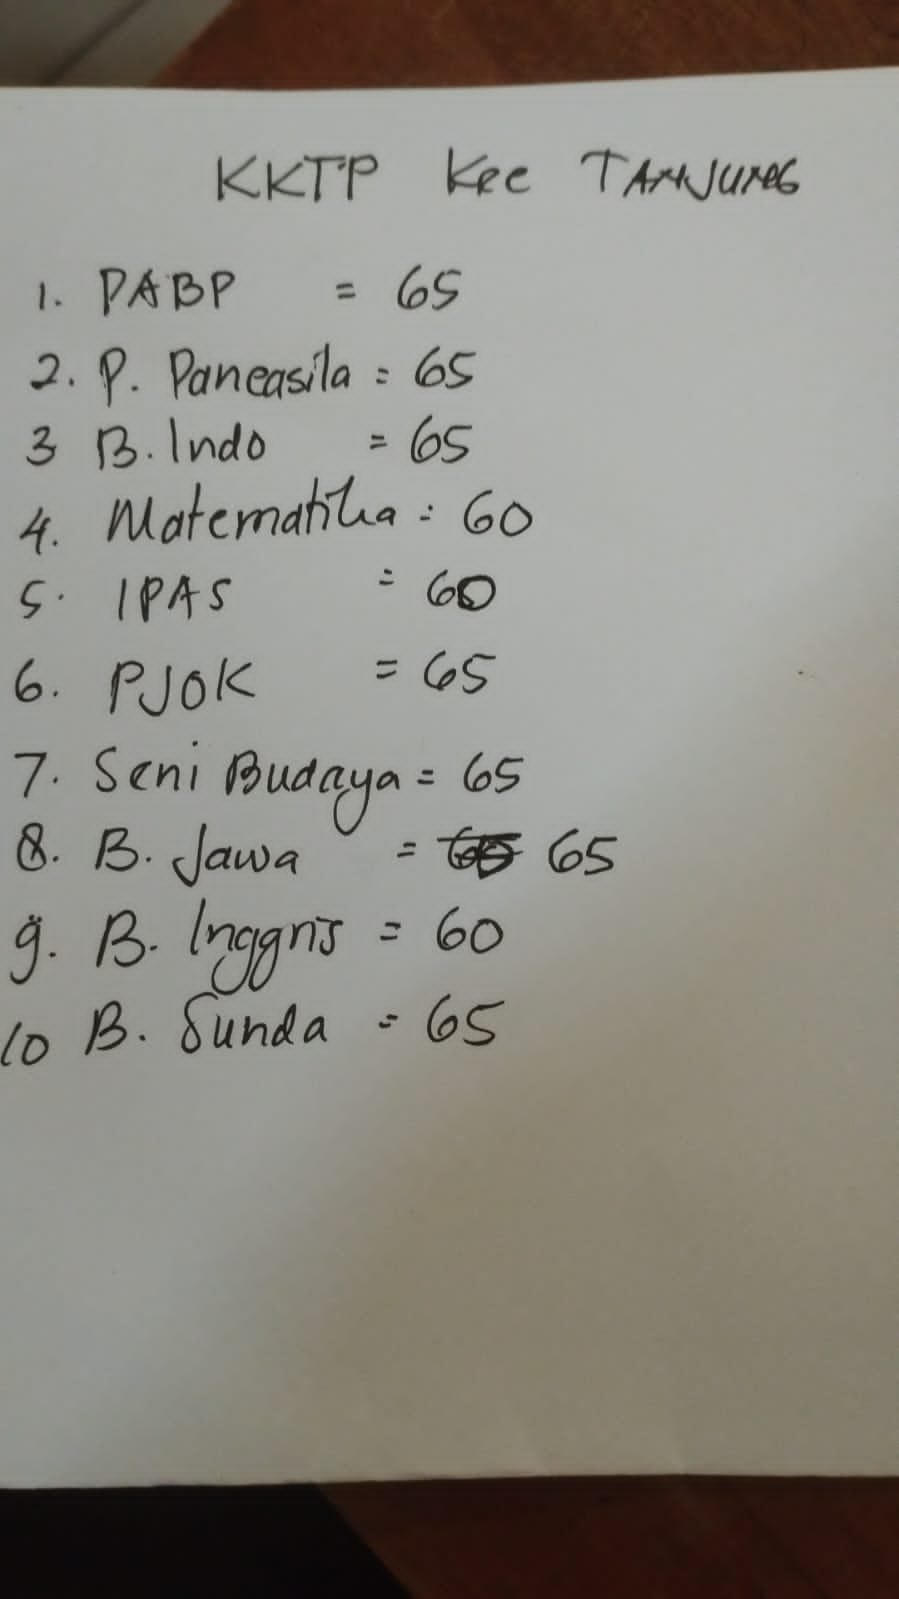 KKTP Kec TANJUNG
1. PABP = 65
2. P. Pancasila = 65
3 B. Indo = 65
4. Matematika = 60
5. IPAS = 60
6. PJOK = 65
7. Seni Budaya = 65
8. B. Jawa = 65
9. B. Inggris = 60
10 B. Sunda = 65